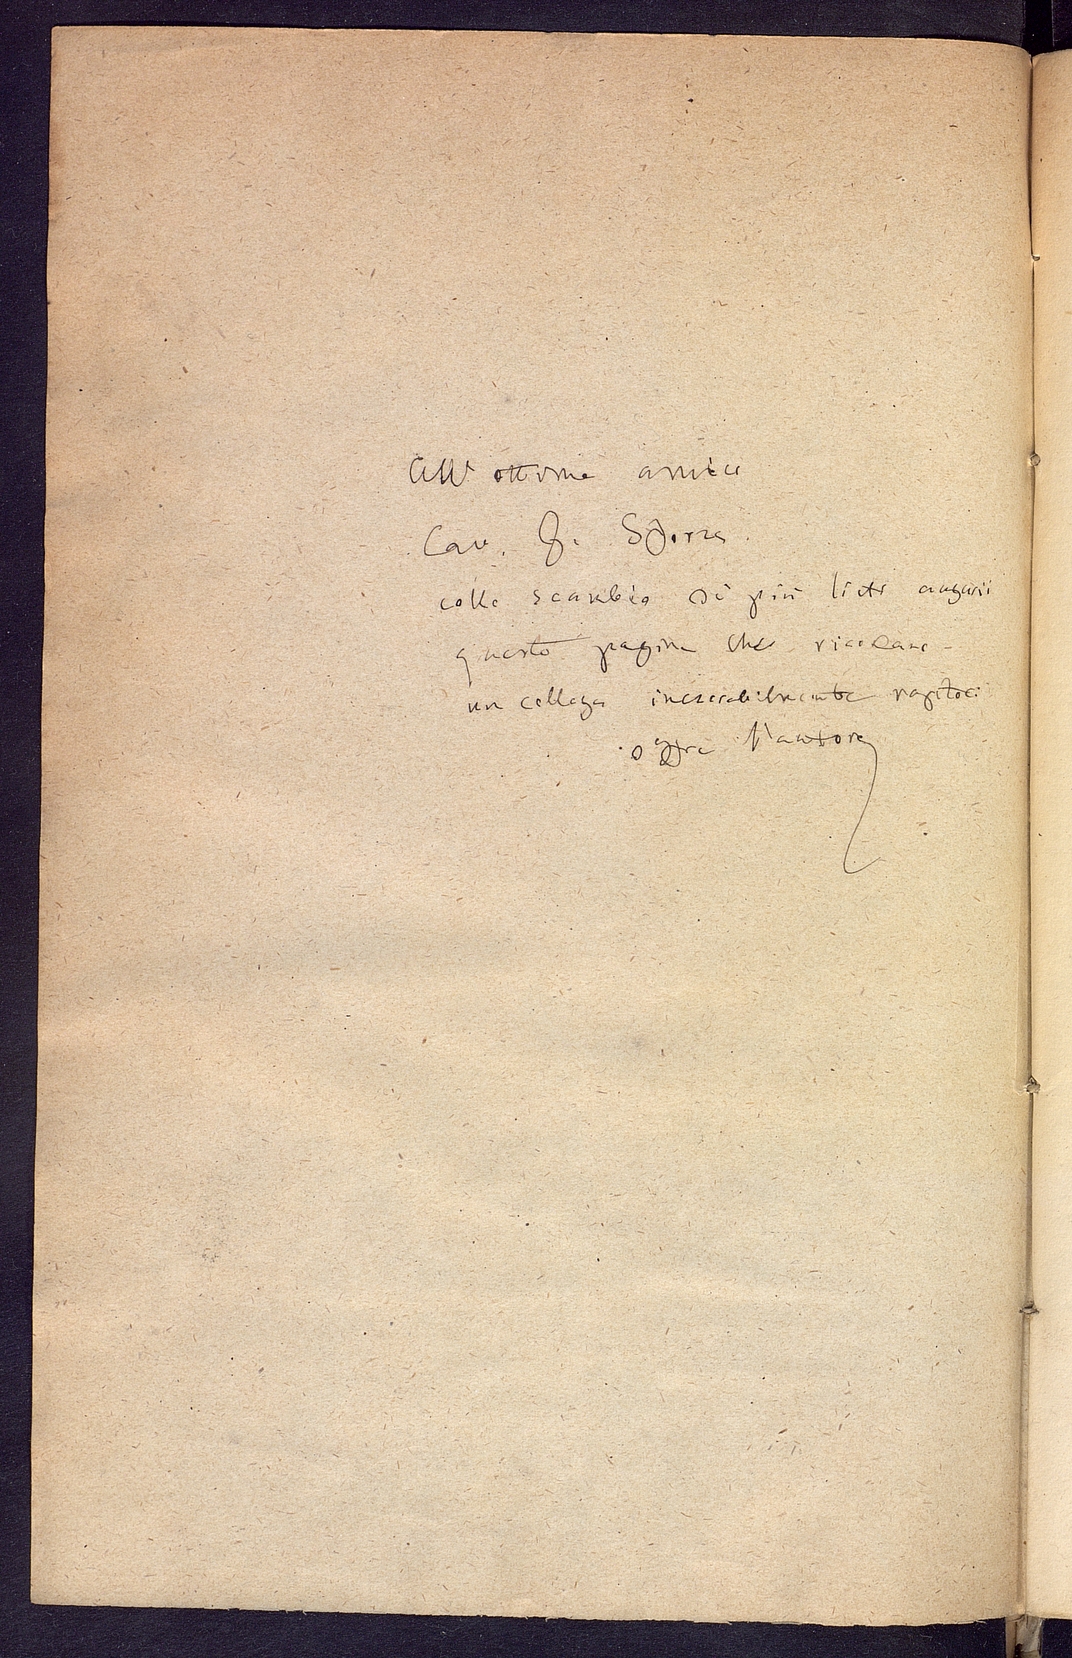 All'ottimo amico
Cav. G. Sforza
collo scambio di più lieti augurii
queste pagine che ricordano
un collega inesorabilmente rapitoci
offre l'autore